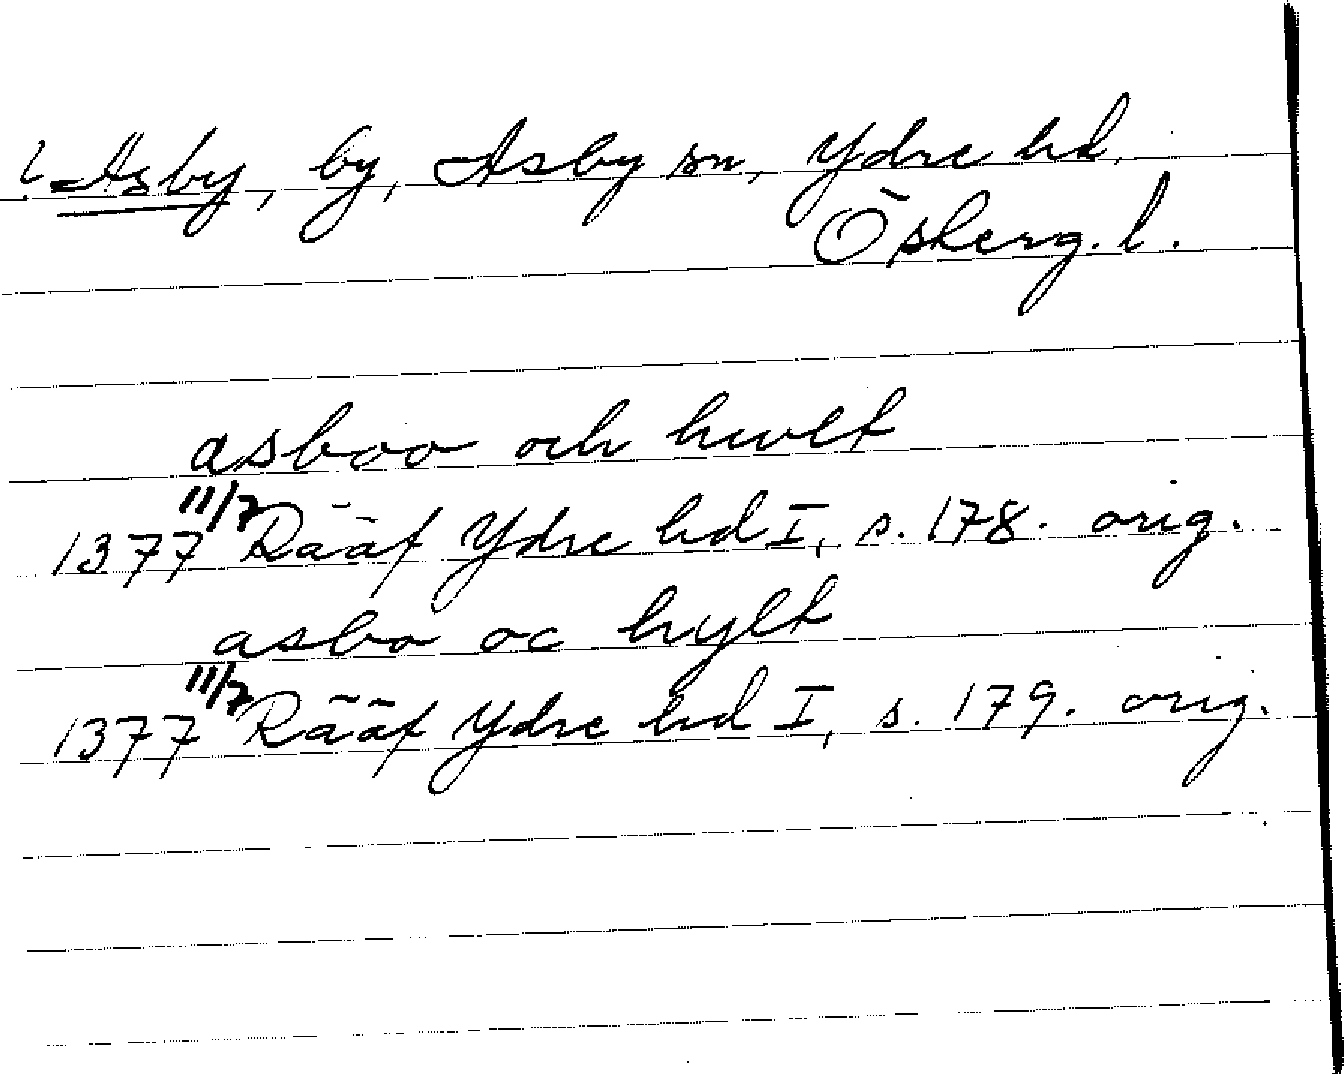 Asby, by, Asby sn, Ydre hd,
Österg. l.
asboo och hwlt
1377 11/7 Rääf Ydre hd I, s. 178. orig.
asbo oc hylt
1377 11/7 Rääf Ydre hd I, s. 179. orig.